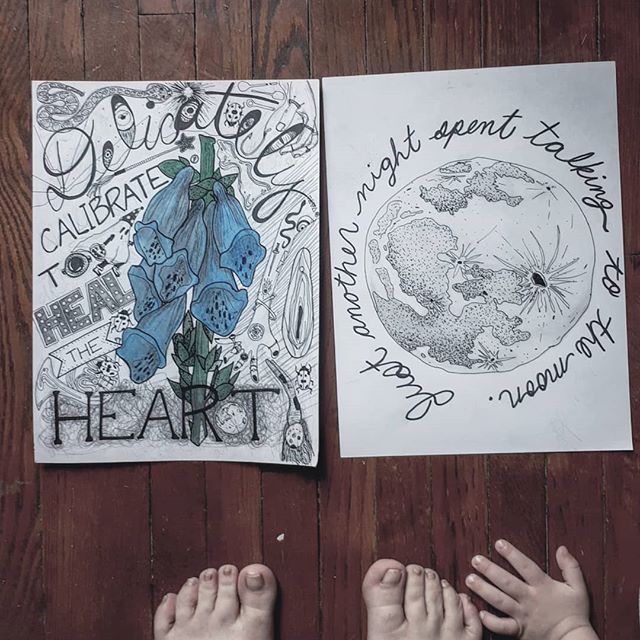 Delicately
CALIBRATE
TO
HEAL
THE
HEART
Just another night spent talking to the moon.